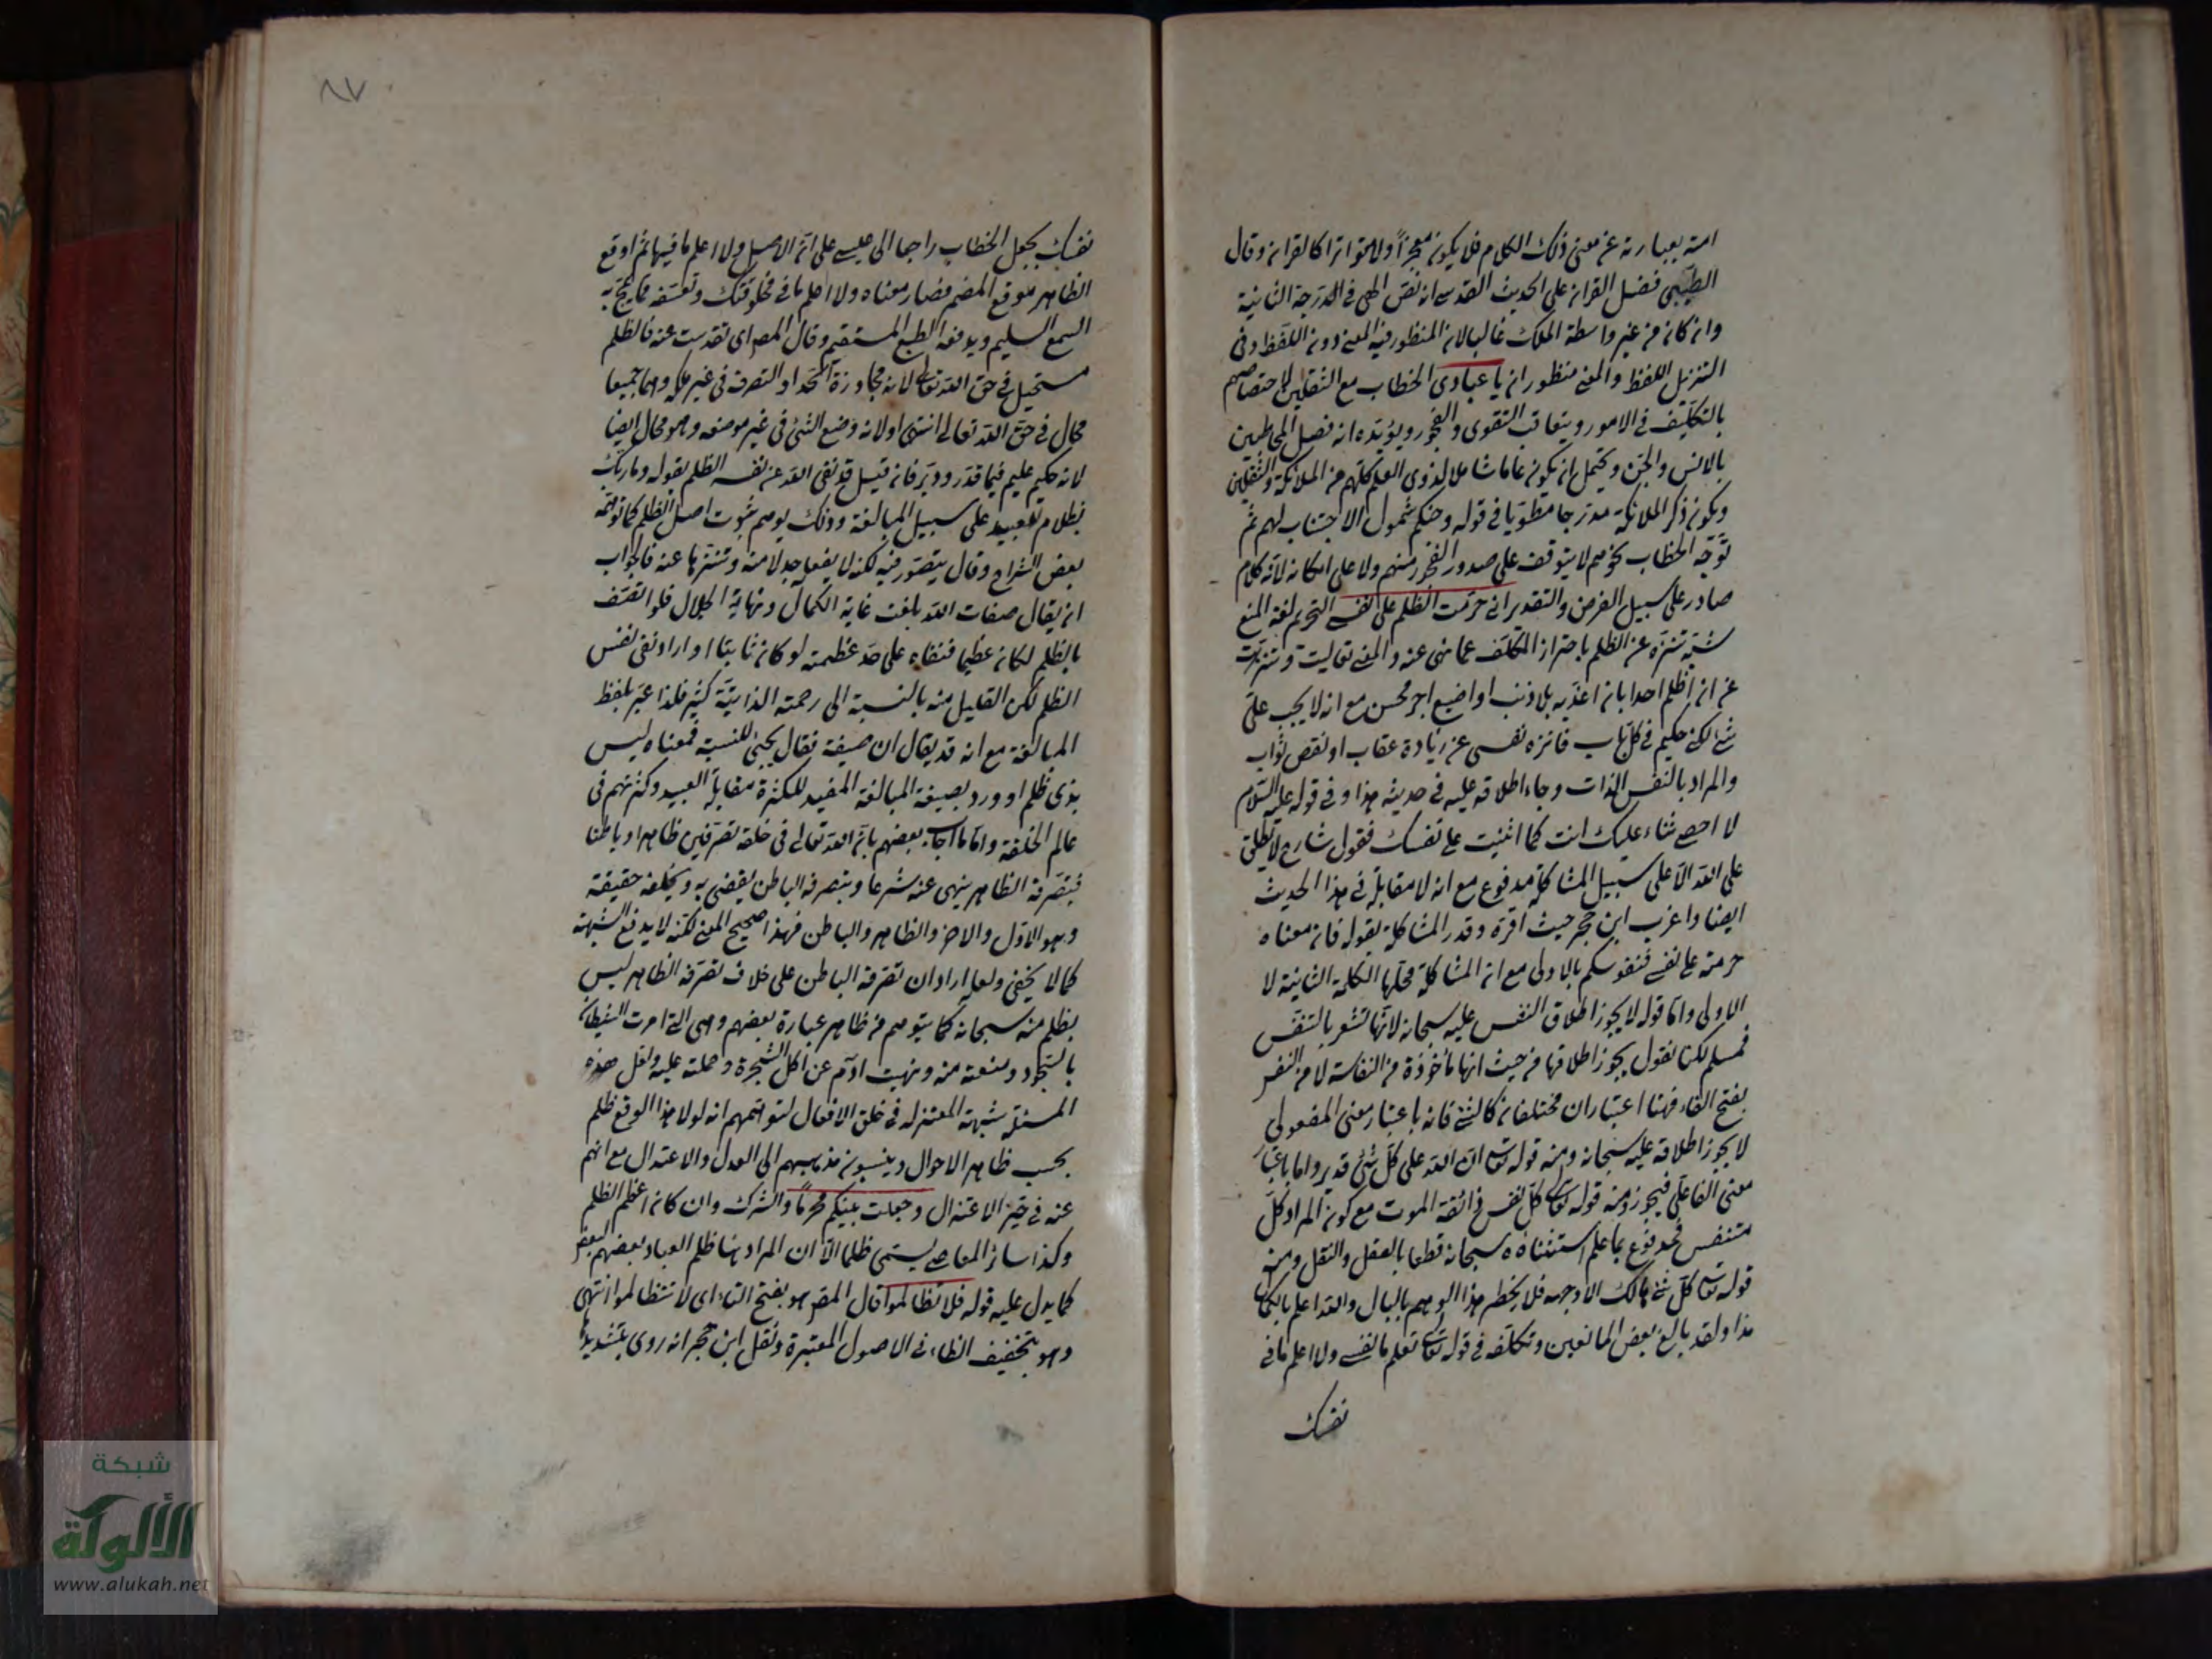 امته بعبارته عن معنى ذلك الكلام فلا يكون معجزاً ولا متواترا كالقران وقال
الطيّبي فضل القران على الحديث القدسي انه نصّ الهي في الدرجة الثانية
وان كان من غير واسطة الملك غالبا لان المنظور فيه المعنى دون اللفظ وفي
التنزيل اللفظ والمعنى منظوران يا عبادي الخطاب مع الثقلين لاختصاصهم
بالتكليف في الامور ويتعاقب التقوى والفجور ويؤيّده انه فصل المخاطبين
بالانس والجن ويحتمل ان يكون عاما شاملا لذوي العلم كلّهم من الملائكة والثقلين
ويكون ذكر الملائكة مدرجا مطويّا في قوله وجنكم لشمول الاجتناب لهم ثم
توجّه الخطاب نحوهم لا يتوقف على صدور الفجور منهم ولا على امكانه لانه كلام
صادر على سبيل الفرض والتقدير اني حرّمت الظلم على نفسي التحريم لغة المنع
شبّه تنزّه عن الظلم باحتراز المكلّف عما نهي عنه والمعنى تعاليت وتنزّهت
عن ان اظلم احدا بان اعذبه بلا ذنب او اضيع اجر محسن مع انه لا يجب عليّ
شئ لكني حكيم في كل باب فانزه نفسي عن زيادة عقاب او نقص ثواب
والمراد بالنفس الذات وجاء اطلاقه عليه في حديثه هذا وفي قوله عليه السّلام
لا احصي ثناء عليك انت كما اثنيت على نفسك فقول شارح لا يطلق
على الله الّا على سبيل المشاكلة مدفوع مع انه لا مقابلة في هذا الحديث
ايضا واغرب ابن حجر حيث اقرّه وقدر المشاكلة بقوله فان معناه
حرمته على نفسي فنفوسكم بالاولى مع ان المشاكلة محلّها الكلمة الثانية لا
الاولى وامّا قوله لا يجوز اطلاق النفس عليه سبحانه لانّها تشعر بالتنفّس
فمسلم لكنا نقول يجوز اطلاقها من حيث انها مأخوذة من النفاسة لا من النفس
بفتح الفاء فهنا اعتباران مختلفان كالشئ فانه باعتبار معنى المفعولي
لا يجوز اطلاقه عليه سبحانه ومنه قوله تعالى ان الله على كل شئ قدير واما باعتبار
معنى الفاعلي فيجوز ومنه قوله تعالى كلّ نفس ذائقة الموت مع كون المراد كلّ
متنفس فمدفوع بما علم استثناؤه سبحانه قطعا بالعقل والنقل ومنه
قوله تعالى كلّ شئ هالك الا وجهه فلا يخطر هذا الوهم بالبال والله اعلم بالحال
هذا ولقد بالغ بعض المانعين وتكلّف في قوله تعالى تعلم ما نفسي ولا اعلم ما في
نفسك
٨٧
نفسك بجعل الخطاب راجعا الى عيسى على انّه الاصل ولا اعلم ما فيها ثم اوقع
الظاهر موقع المضمر فصار معناه ولا اعلم ما في مخلوقتك وتعسّفه مما يمجّ به
السمع السليم ويدفعه الطبع المستقيم وقال المصم اي تقدست عنه فالظلم
مستحيل في حق الله تعالى لانه مجاوزة الحد او التصرف في غير ملكه وهما جميعا
محال في حقّ الله تعالى انتهى اولانه وضع الشئ في غير موضعه وهو محال ايضا
لانه حكيم عليم فيما قدر ودبّر فان قيل قد نفى الله عن نفسه الظلم بقوله وما ربّك
بظلام للعبيد على سبيل المبالغة وذلك يوهم ثبوت اصل الظلم كما توهّمه
بعض الشراح وقال يتصوّر فيه لكنه لا يفعله عدلا منه وتنزّها عنه فالجواب
ان يقال صفات الله بلغت غاية الكمال ونهاية الجلال فلو اتصف
بالظلم لكان عظيما فنفاه على حدّ عظمته لو كان ثابتا او اراد نفي نفس
الظلم لكن القليل منه بالنسبة الى رحمته الذاتيّة كثير فلذا عبّر بلفظ
المبالغة مع انه قد يقال ان صيغة فعّال يجئ للنسبة فمعناه ليس
بذي ظلم او ورد بصيغة المبالغة المفيد للكثرة مقابلة العبيد وكثرتهم في
عالم الخلقة وامّا ما اجاب بعضهم بانّ الله تعالى في خلقه تصرّفين ظاهرا وباطنا
فتصرّفه الظاهر ينهى عنه شرعا وبتصرفه الباطن يقضي به ويخلقه حقيقة
وهو الاوّل والاخر والظاهر والباطن فهذا صحيح المعنى لكنّه لا يدفع الشبهة
كما لا يخفى ولعله اراد ان تصرّفه الباطن على خلاف تصرّفه الظاهر ليس
بظلم منه سبحانه كما يتوهم من ظاهر عبارة بعضهم وهي التي امرت الشيطان
بالسّجود ومنعته منه ونهيت آدم عن اكل الشجرة وحملته عليه ولعل هذه
المسئلة شبهة المعتزلة في خلق الافعال لتوهّمهم انه لولا هذا لوقع ظلم
بحسب ظاهر الاحوال وينسبون مذهبهم الى العدل والاعتدال مع انهم
عنه في حيّز الاعتزال وجعلت بينكم محرّماً والشرك وان كان اعظم الظلم
وكذا سائر المعاصي يسمّى ظلما الّا ان المراد هنا ظلم العباد بعضهم البعض
كما يدل عليه قوله فلا تظالموا قال المصم هو بفتح التاء اي لا تتظالموا انتهى
وهو بتخفيف الظاء في الاصول المعتبرة ونقل ابن حجر انه روي بتشديدها
شبكة
الألوكة
www.alukah.net